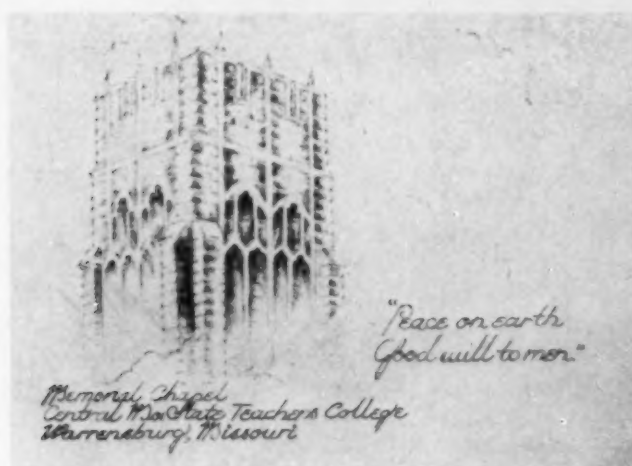 "Peace on earth
Good will to men."
Memorial Chapel
Central Mo. State Teachers College
Warrensburg, Missouri